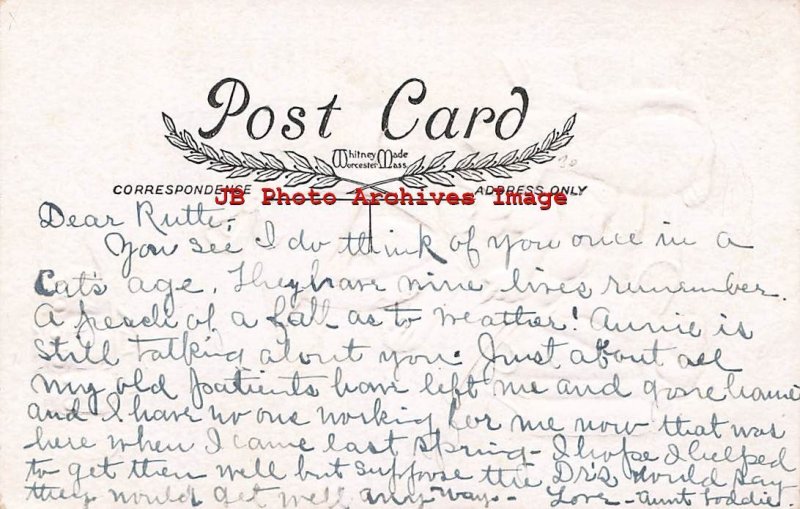 Post Card
Whitney Made
Worcester Mass.
CORRESPONDENCE
ADDRESS ONLY
JB Photo Archives Image
Dear Ruth:-
You see I do think of you once in a
Cat's age. They have nine lives remember.
A peach of a fall as to weather! Annie is
still talking about you. Just about all
my old patients have left me and gone home
and I have no one working for me now that was
here when I came last spring - I hope I helped
to get them well but suppose the Dr's would say
they would get well any way - Love - Aunt